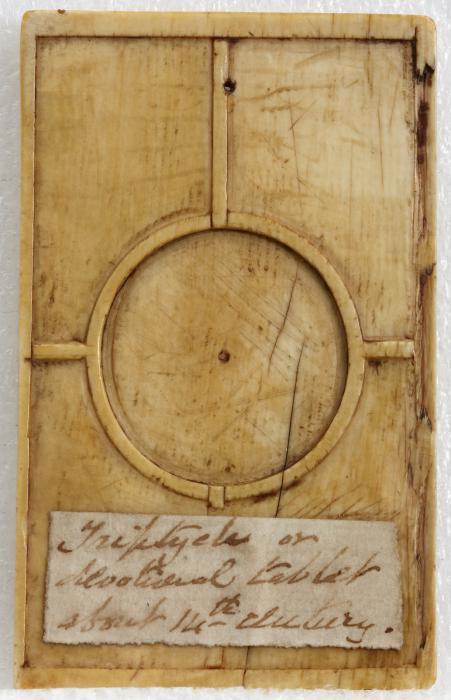 Triptych or
devotional tablet
about 14th century.